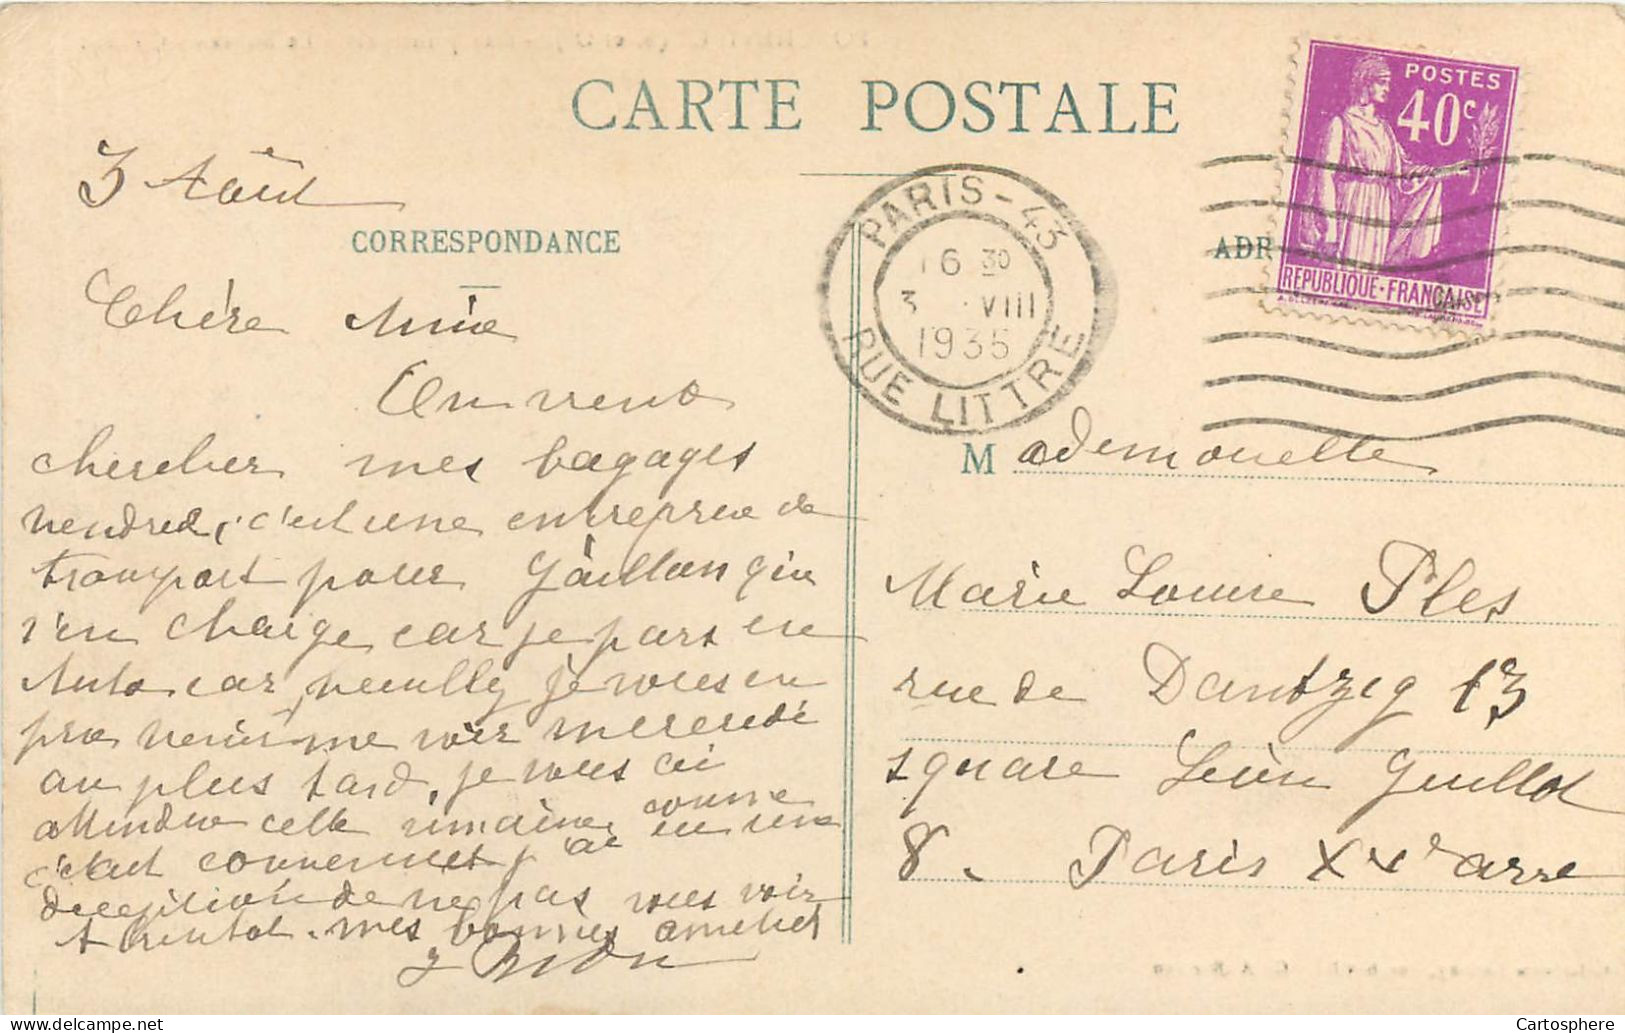 CARTE POSTALE
POSTES
40c
REPUBLIQUE-FRANÇAISE
PARIS - 43
16 30
3 VIII
1935
RUE LITTRE
3 Août
CORRESPONDANCE
ADR
Chère Amie
On vend
chercher mes bagages
vendredi, c'est une entreprise de
transport pour Gaillon qui
s'en charge car je pars en
Autocar, veuillez je vous en
prie venir me voir mercredi
au plus tard, je vous ai
attendue cette semaine, comme
c'était convenu et j'ai eu une
déception de ne pas vous voir
A bientôt. mes bonnes amitiés
Mademoiselle
Marie Louise Ples
rue de Dantzig 13
square Léon Guillot
8. Paris XVe arre
Cartosphere
www.delcampe.net